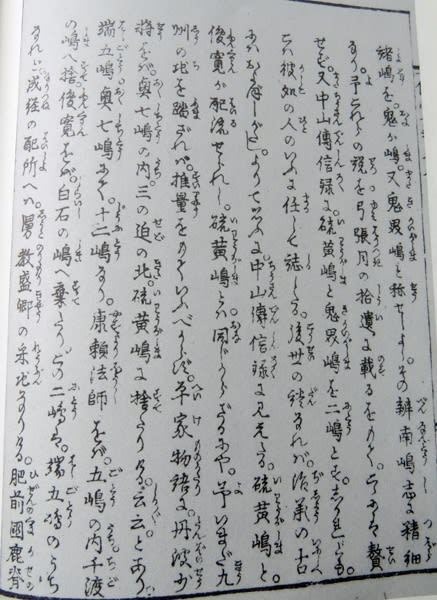 諸嶋を。鬼が嶋。又鬼界嶋と称せしよし。その辨南嶋志に猪細
なり。予これらの説を弓張月の拾遺に載るをもて。こゝに贅
せず。又中山傳信録に。硫黄嶋と鬼界嶋を二嶋とす。しかれども
こは彼処の人のいふに任して誌したる。後世の説なれば。治承の古
よりて思ふに。中山傳信録に見えたる。硫黄嶋と。
俊寛が配流せられし。硫黄嶋とは同じからざるにや。予いまだ九
州の地を踏ざれば。推量をもていふべからず。平家物語に。丹波少
将をば。奥七嶋の内。三の迫の北。硫黄嶋に捨たりける。云云とあり
端五嶋奥七嶋にて。十二嶋なり。康頼法師をば。五嶋の内千渡
の嶋へ捨。俊寛をば。白石の嶋へ棄たり。この二嶋は。端五嶋のうち
成経の配所へは。舅教盛卿の采地なりける。肥前國鹿脊